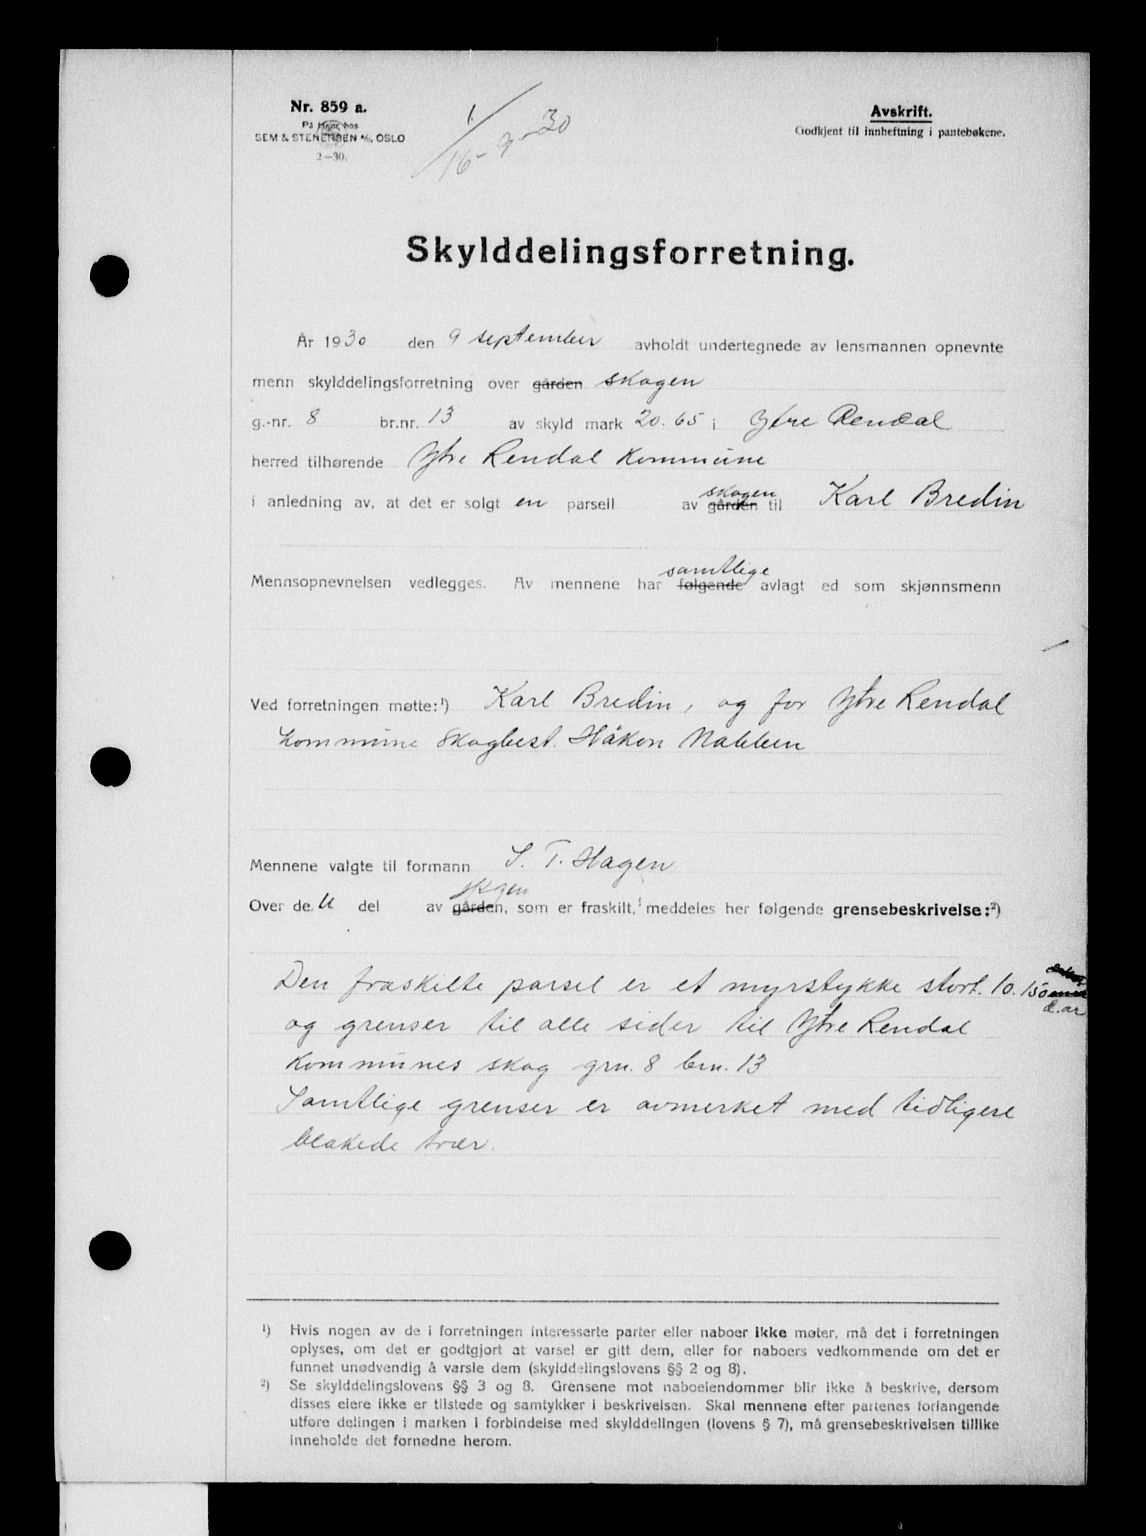 Nr. 859 a.
På lager hos
SEM & STENERSEN A/S, OSLO
2—30.
1/16-9-30
Avskrift.
Godkjent til innheftning i pantebøkene.
Skylddelingsforretning.
År 1930 den 9 september avholdt undertegnede av lensmannen opnevnte
menn skylddelingsforretning over gården skogen
g.-nr. 8 br.nr. 13 av skyld mark 20.65 i Ytre Rendal
herred tilhørende Ytre Rendal Kommune
skogen
i anledning av, at det er solgt en parsell av gården til Karl Bredin
samtlige
Mennsopnevnelsen vedlegges. Av mennene har følgende avlagt ed som skjønnsmenn
Ved forretningen møtte:¹) Karl Bredin, og for Ytre Rendal
kommune Skogbest. Håkon Nabben
Mennene valgte til formann S. T. Hagen
skogen
Over de u del av gården, som er fraskilt, meddeles her følgende grensebeskrivelse:²)
Den fraskilte parsel er et myrstykke stort 10.150
d.ar
og grenser til alle sider til Ytre Rendal
Kommunes skog grn. 8 brn. 13
Samtlige grenser er avmerket med tidligere
blekede trær.
¹) Hvis nogen av de i forretningen interesserte parter eller naboer ikke møter, må det i forretningen
oplyses, om det er godtgjort at varsel er gitt dem, eller for naboers vedkommende om det er
funnet unødvendig å varsle dem (skylddelingslovens §§ 2 og 8).
²) Se skylddelingslovens §§ 3 og 8. Grensene mot naboeiendommer blir ikke å beskrive, dersom
disses eiere ikke er tilstede og samtykker i beskrivelsen. Skal mennene efter partenes forlangende
utføre delingen i marken i forbindelse med skylddelingen (lovens § 7), må grensebeskrivelsen tillike
inneholde det fornødne herom.